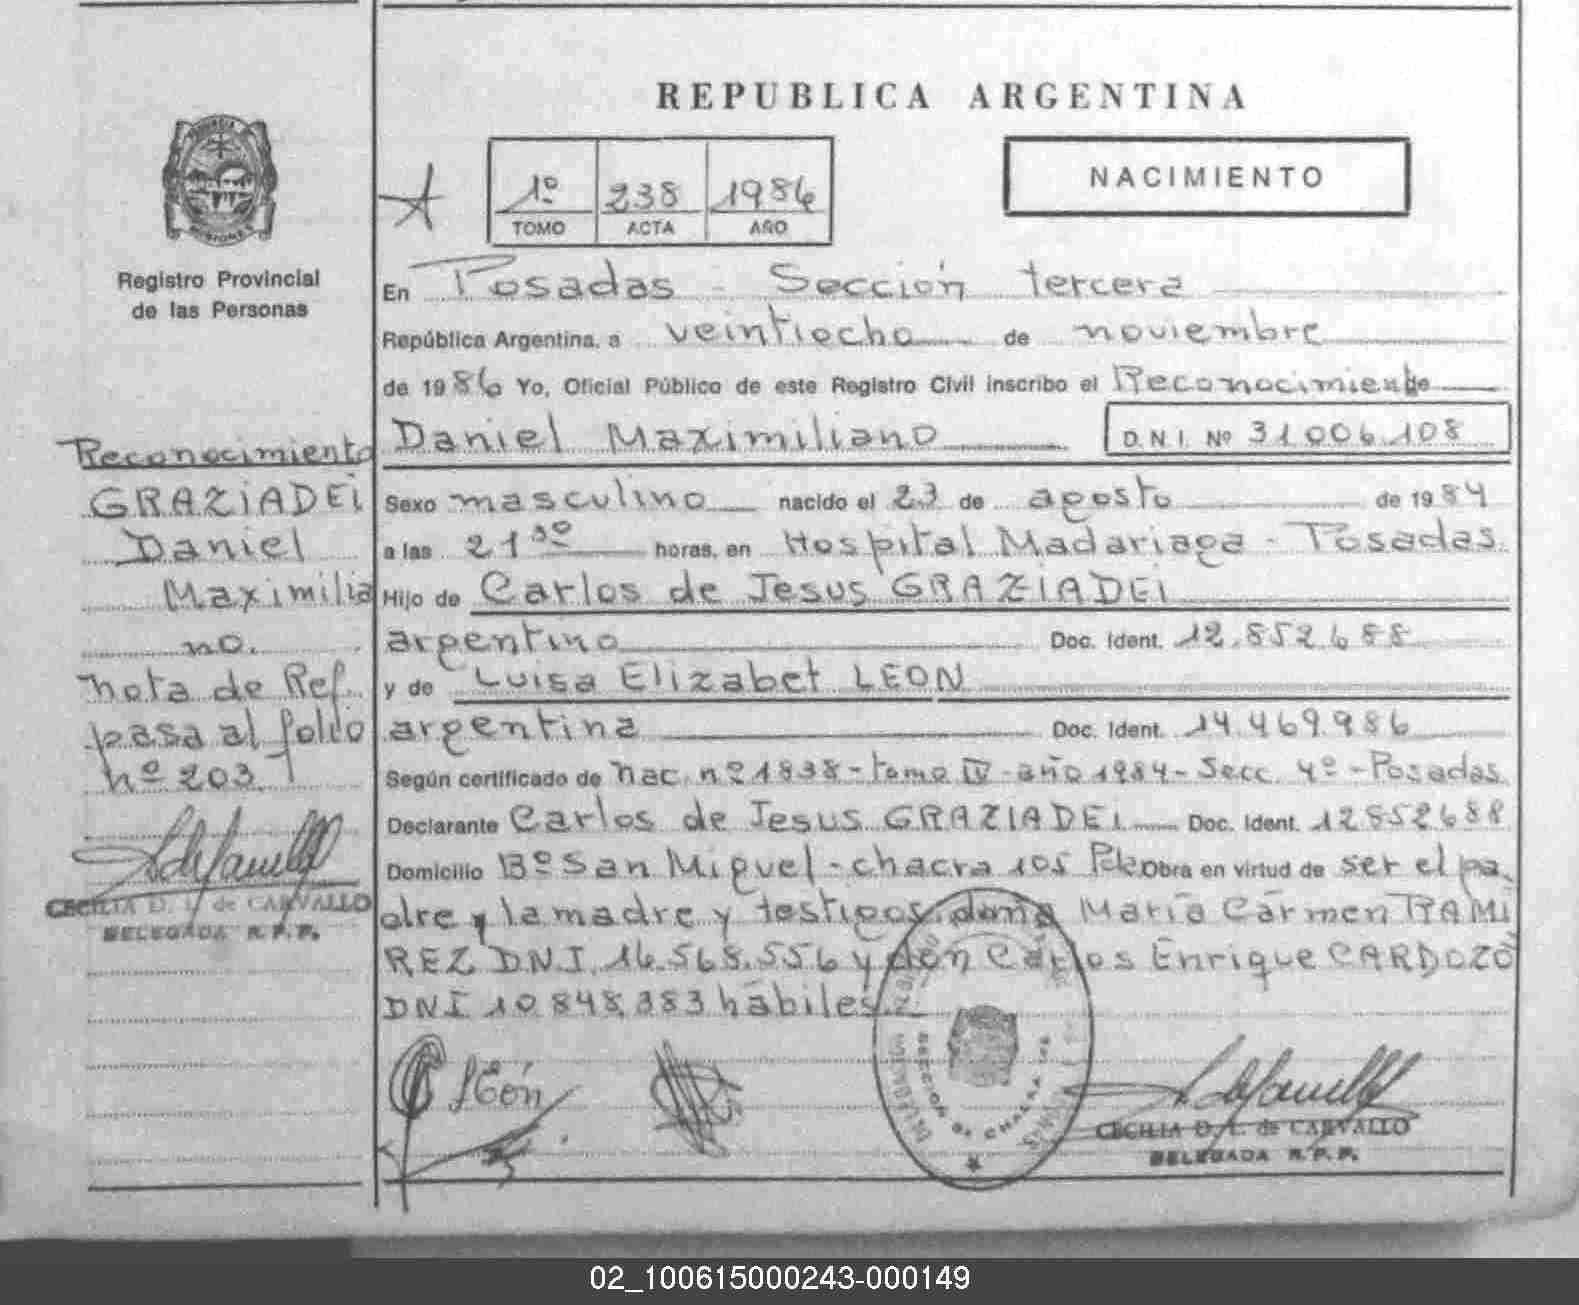 REPUBLICA ARGENTINA
1º 238 1986
TOMO ACTA AÑO
NACIMIENTO
PROVINCIA
MISIONES
Registro Provincial
de las Personas
En Posadas - Sección tercera
República Argentina, a veintiocho de noviembre
de 1986 Yo, Oficial Público de este Registro Civil inscribo el Reconocimiento de
Daniel Maximiliano D.N.I. Nº 31.006.108
Sexo masculino nacido el 23 de agosto de 1984
a las 21 30 horas, en Hospital Madariaga - Posadas.
Hijo de Carlos de Jesus GRAZIADEI
argentino Doc. Ident. 12.852.688
y de Luisa Elizabet LEON
argentina Doc. Ident. 14.469.986
Según certificado de nac. nº 1838 - tomo IV - año 1984 - Secc. 4º - Posadas.
Declarante Carlos de Jesus GRAZIADEI Doc. Ident. 12852688
Domicilio Bº San Miguel - chacra 105 Obra en virtud de ser el pa
dre y la madre y testigos, doña María Carmen RAMI
REZ DNI. 16.568.556 y don Carlos Enrique CARDOZO
DNI 10.848.383 hábiles.
Reconocimiento
GRAZIADEI
Daniel
Maximilia
no.
nota de Ref.
pasa al folio
nº 203.
CECILIA D. L. de CARVALLO
DELEGADA R.P.P.
León
SECCION 3a CHACRA
CECILIA D. L. de CARVALLO
DELEGADA R.P.P.
02_100615000243-000149